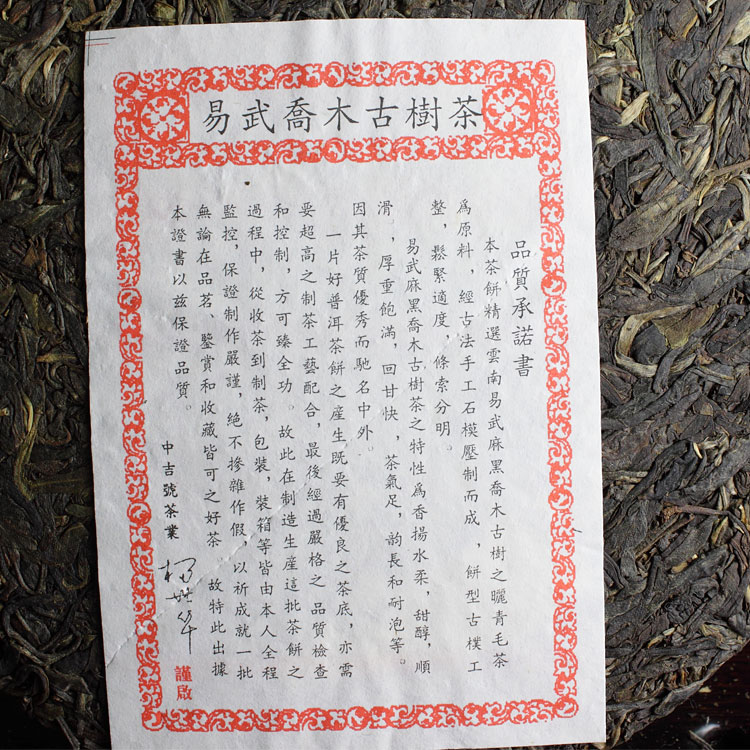 易武喬木古樹茶
品質承諾書
本茶餅精選雲南易武麻黑喬木古樹之曬青毛茶
爲原料，經古法手工石模壓制而成，餅型古樸工
整，鬆緊適度，條索分明。
易武麻黑喬木古樹茶之特性爲香揚水柔，甜醇，順
滑，厚重飽滿，回甘快，茶氣足，韵長和耐泡等。
因其茶質優秀而馳名中外。
一片好普洱茶餅之産生既要有優良之茶底，亦需
要超高之制茶工藝配合，最後經過嚴格之品質檢查
和控制，方可臻全功。故此在制造生産這批茶餅之
過程中，從收茶到制茶，包裝，裝箱等皆由本人全程
監控，保證制作嚴謹，絕不摻雜作假，以祈成就一批
無論在品茗、鑒賞和收藏皆可之好茶 故特此出據
本證書以兹保證品質。
中吉號茶業
謹啟